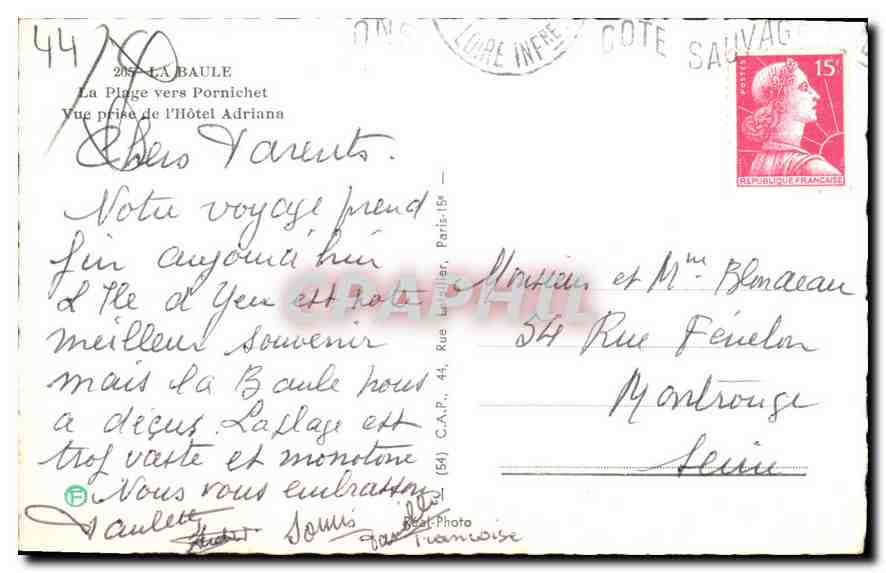 44
205 - LA BAULE
La Plage vers Pornichet
Vue prise de l'Hôtel Adriana
Chers Parents.
Notre voyage prend
fin aujourd'hui
L'Ile d'Yeu est notre
meilleur souvenir
mais la Baule nous
a déçus. La plage est
trop vaste et monotone
Nous vous embrassons
Paulette
Françoise
F
(54) C.A.P., 44, Rue Letellier, Paris-15e
Réel-Photo
CPAPHIL
ONS
LOIRE INFRE
COTE SAUVAG
POSTES
15F
REPUBLIQUE FRANÇAISE
Monsieur et Mme Blondeau
54 Rue Fénelon
Montrouge
Seine